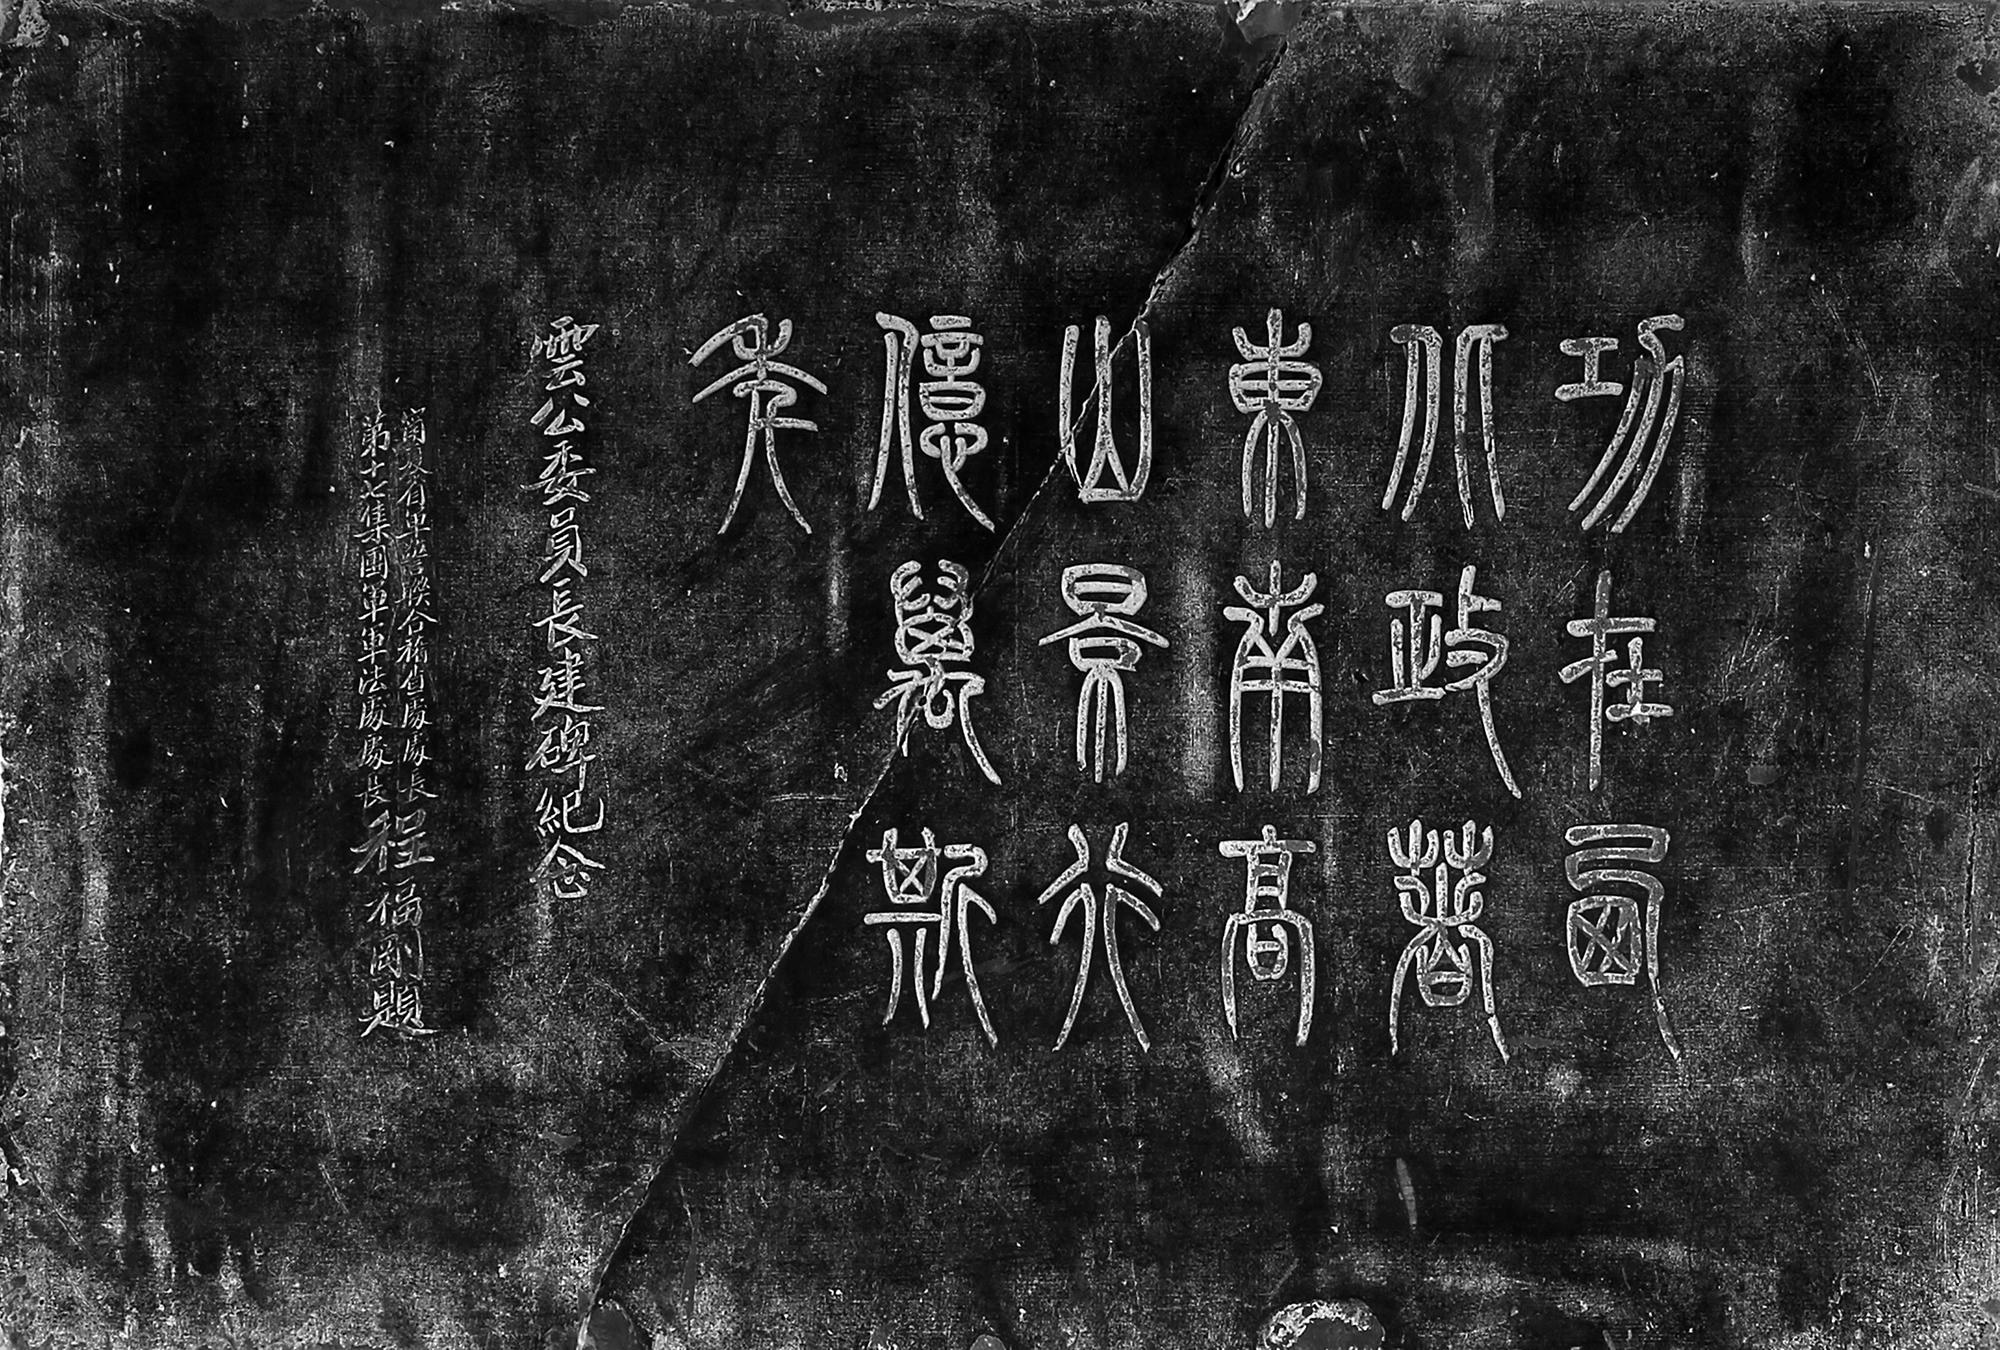 功在西
北政著
東南高
山景行
億萬斯
年
雲公委員長建碑紀念
甯夏省軍警聯合稽查處處長
第十七集團軍軍法處處長
程福剛題